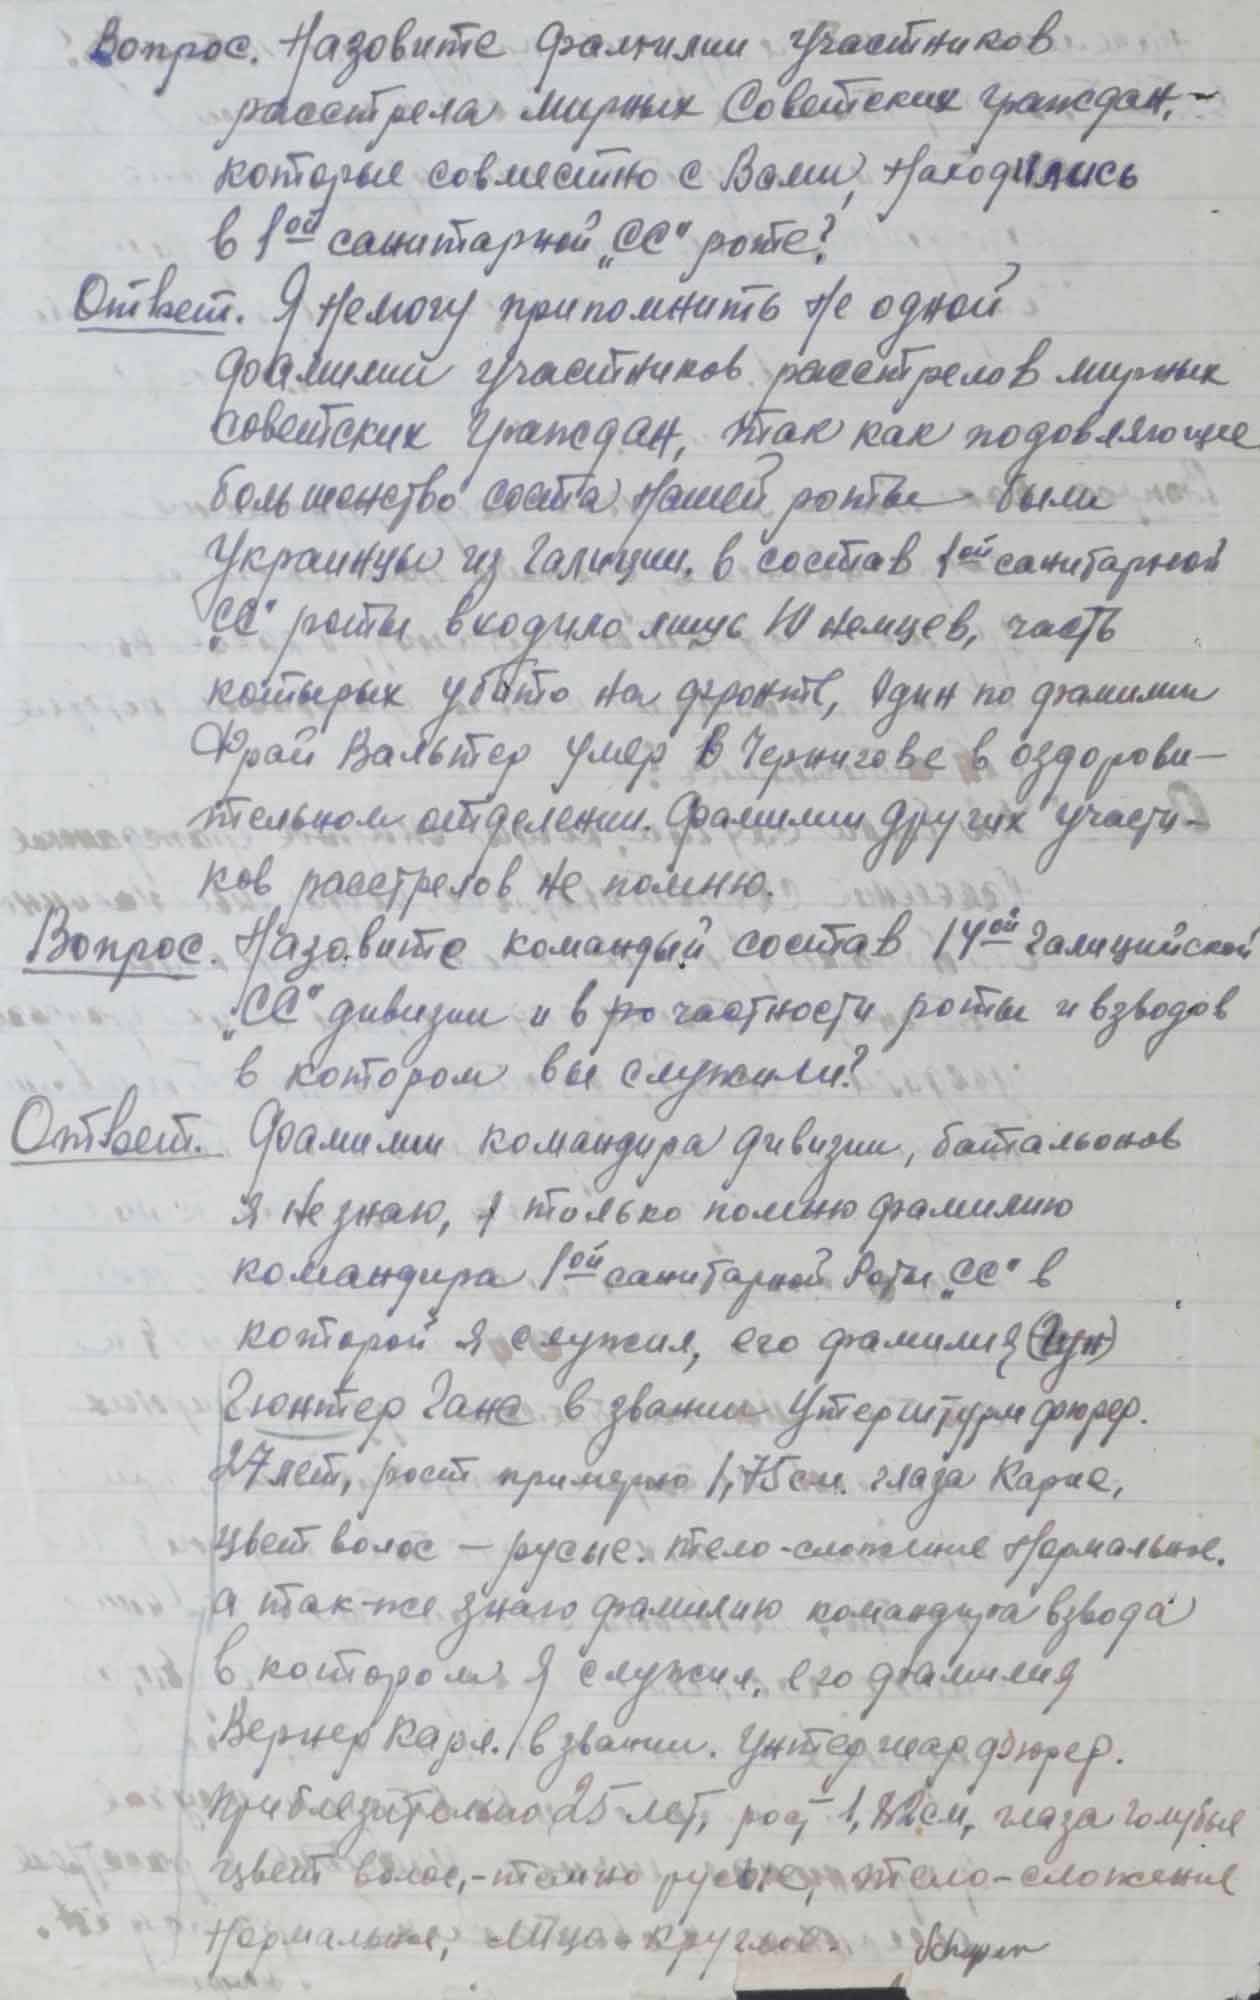 Вопрос. Назовите фамилии участников
расстрела мирных Советских граждан, -
которые совместно с Вами, находились
в 1ой санитарной „СС" роте?
Ответ. Я немогу припомнить не одной
фамилии участников расстрелов мирных
советских граждан, так как подовляющее
большенство соста нашей роты были
Украинцы из Галиции. в состав 1ой санитарной
„СС" роты входило лишь 10 немцев, часть
которых убито на фронте, один по фамилии
Фрай Вальтер умер в Чернигове в оздорови-
тельном отделении. Фамилии других участи-
ков расстрелов не помню.
Вопрос. Назовите командый состав 14ой Галицийской
„СС" дивизии и в ро частности роты и взводов
в котором вы служили?
Ответ. Фамилии командира дивизии, батальонов
я не знаю, я только помню фамилию
командира 1ой санитарной Роты „СС" в
которой я служил, его фамилия (Гун)
Гюнтер Ганс в звании Утерштурмфюрер.
27 лет, рост примерно 1,75 см. глаза Карие,
цвет волос - русые. тело-сложение Нормальное.
а так-же знаю фамилию командира взвода
в котором я служил, его фамилия
Вернер Карл. в звании. Унтершарфюрер.
приблезительно 25 лет, рост 1,82 см, глаза голубые
цвет волос, - темно русые, тело-сложение
Нормальное, Лицо - круглое.